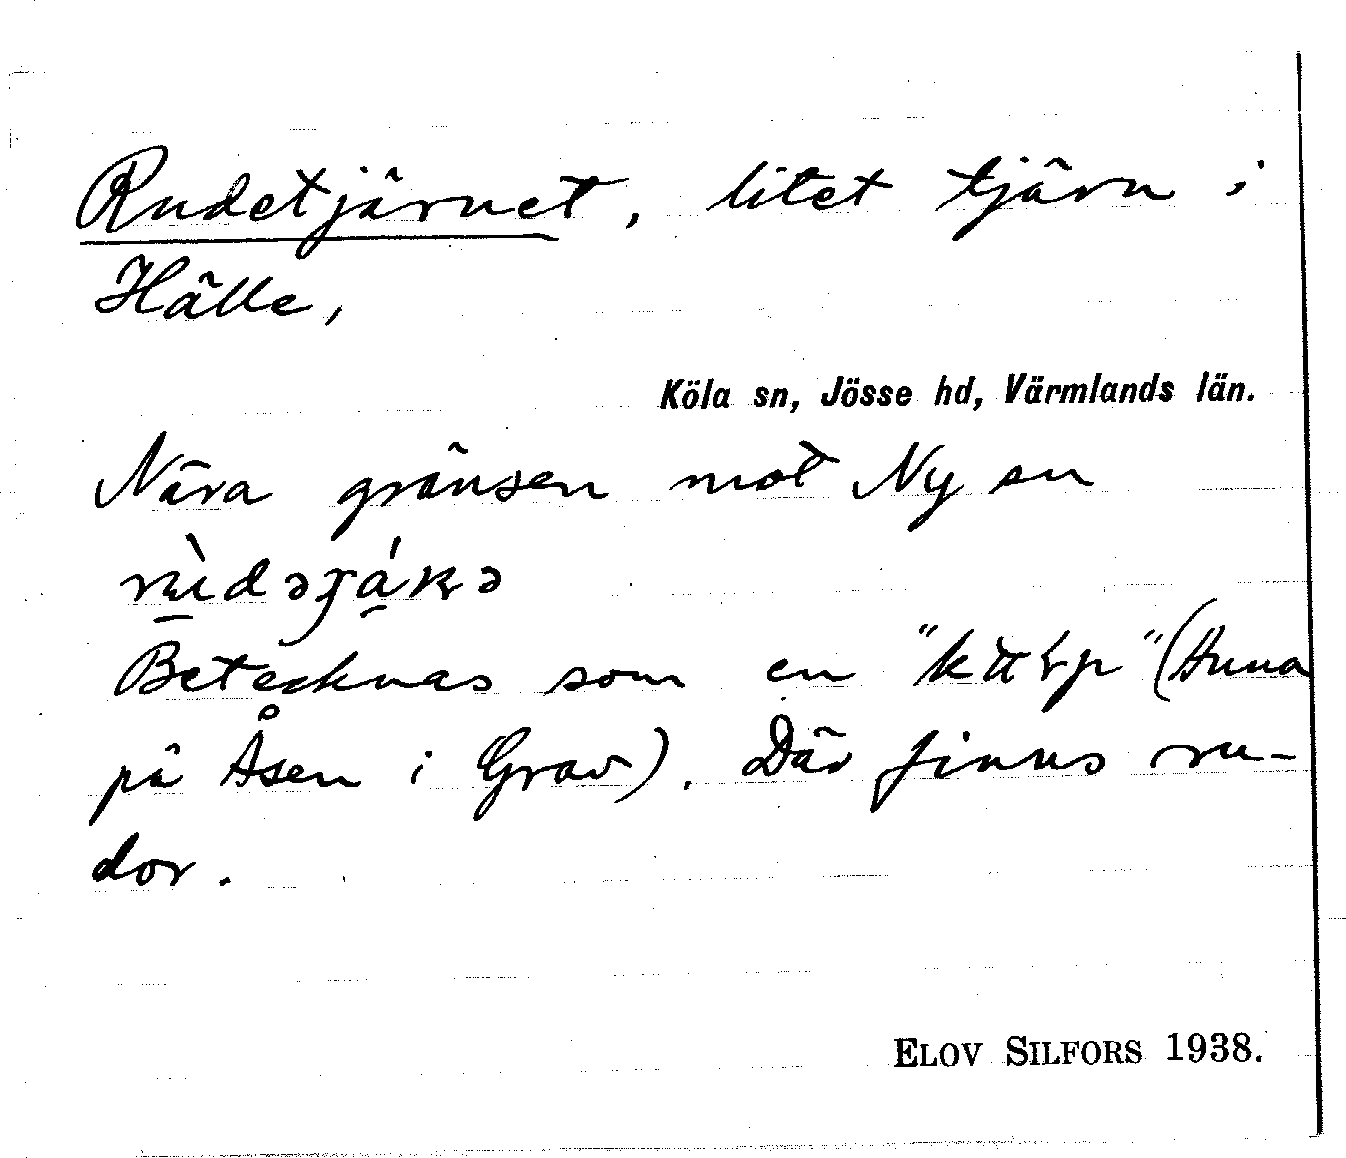 Rudetjärnet, litet tjärn i
Hälle,
Köla sn, Jösse hd, Värmlands län.
Nära gränsen mot Ny sn
Betecknas som en " " (Anna
på Åsen i Grav). Där finns ru-
dor.
ELOV SILFORS 1938.